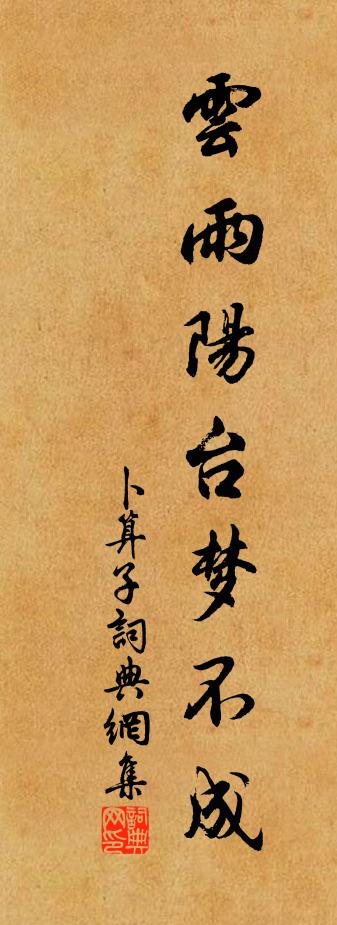 雲雨陽台梦不成
卜算子詞典網集
詞典网印